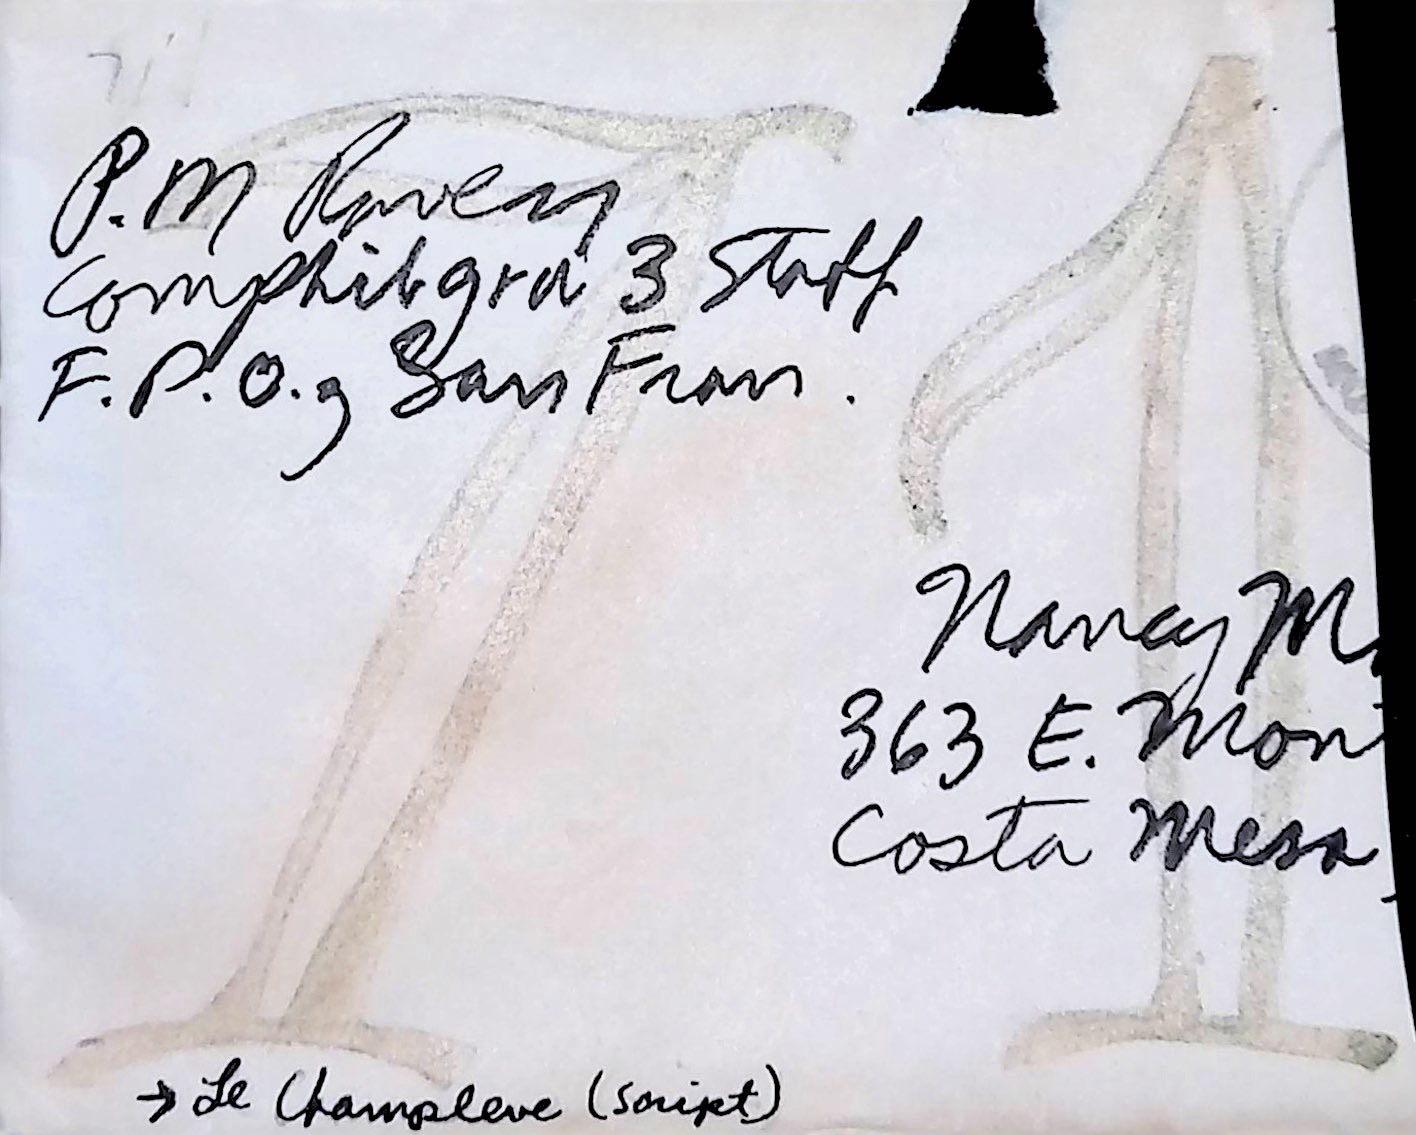 71
P.M Rivers
Comphibgru 3 Staff
F.P.O., San Fran.
Nancy M
363 E. Mon
Costa Mesa,
→ Le Champleve (script)